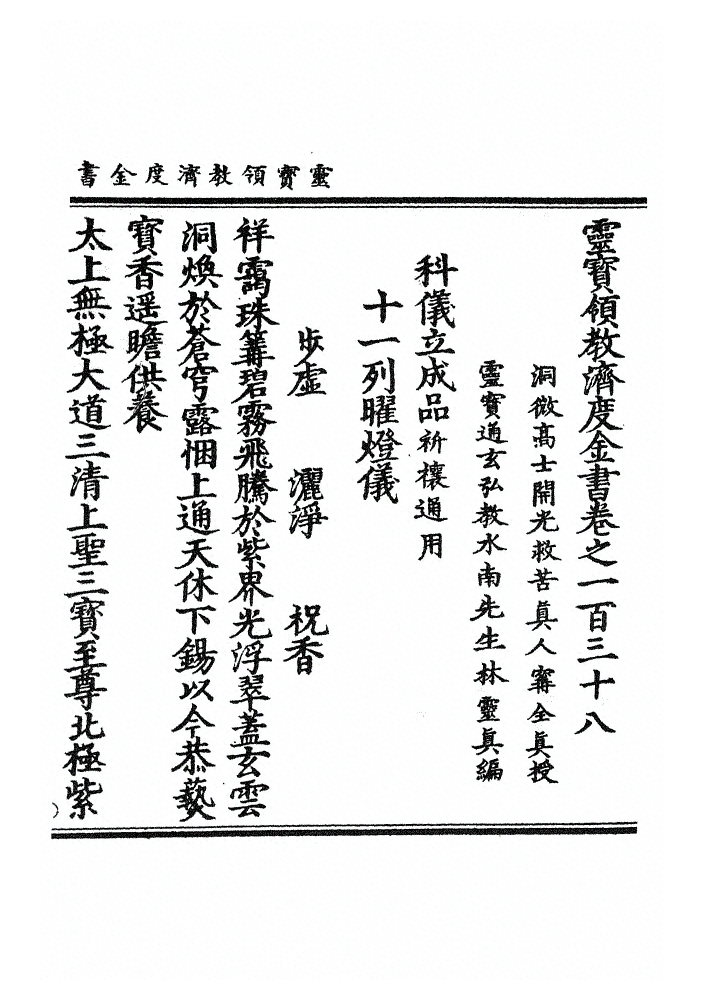 靈寳領教濟度金書
靈寳領教濟度金書卷之一百三十八
洞微高士開光救苦真人甯全真授
靈寳通玄弘教水南先生林靈真編
科儀立成品祈禳通用
十一列曜燈儀
步虛　灑淨　祝香
祥靄珠篝碧霧飛騰於紫界光浮翠蓋玄雲
洞煥於蒼穹露悃上通天休下錫以今恭爇
寳香遥瞻供養
太上無極大道三清上聖三寳至尊北極紫